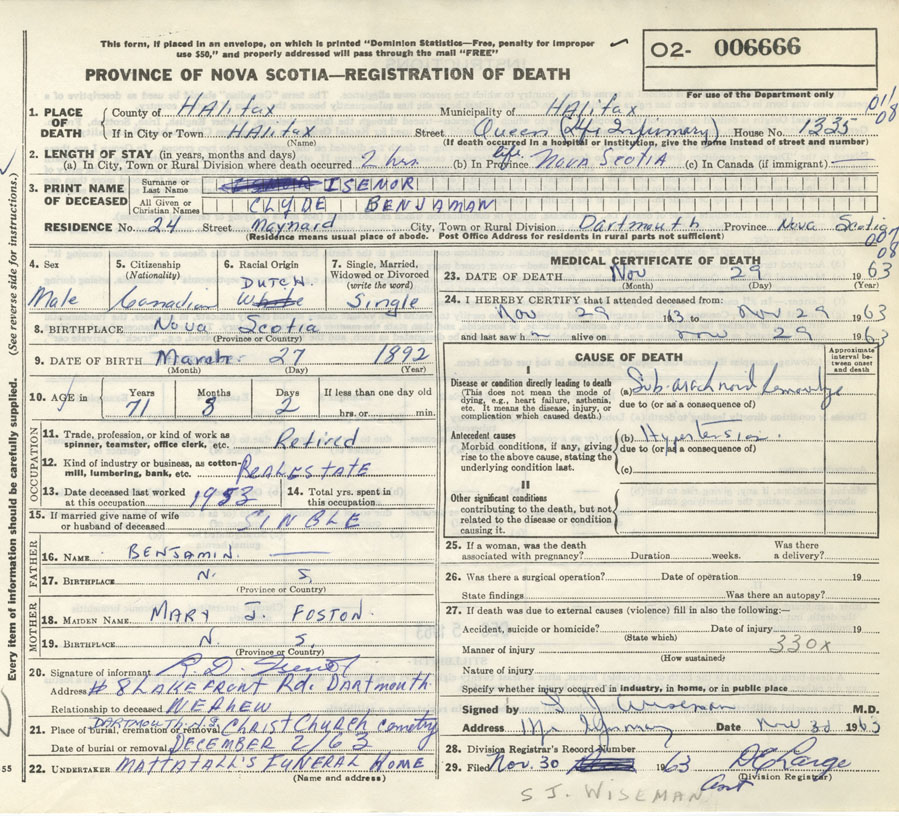 This form, if placed in an envelope, on which is printed "Dominion Statistics—Free, penalty for improper
use $50," and properly addressed will pass through the mail "FREE"
O2- 006666
For use of the Department only
PROVINCE OF NOVA SCOTIA—REGISTRATION OF DEATH
1. PLACE OF DEATH County of HAlifax Municipality of HAlifax 011
If in City or Town HAlifax Street Queen (Hfx Infirmary) House No. 1335 08
(Name) (If death occurred in a hospital or institution, give the name instead of street and number)
2. LENGTH OF STAY (in years, months and days)
(a) In City, Town or Rural Division where death occurred 2 hrs. (b) In Province life Nova Scotia (c) In Canada (if immigrant) —
3. PRINT NAME OF DECEASED Surname or Last Name ISEMOR
All Given or Christian Names CLYDE BENJAMAN
RESIDENCE No. 24 Street Maynard City, Town or Rural Division Dartmouth Province Nova Scotia
(Residence means usual place of abode. Post Office Address for residents in rural parts not sufficient)
08
4. Sex 5. Citizenship (Nationality) 6. Racial Origin 7. Single, Married, Widowed or Divorced (write the word)
DUTCH
Male Canadian White Single
8. BIRTHPLACE Nova Scotia
(Province or Country)
9. DATE OF BIRTH March 27 1892
(Month) (Day) (Year)
10. AGE in Years Months Days If less than one day old
71 8 2 hrs. or min.
OCCUPATION
11. Trade, profession, or kind of work as spinner, teamster, office clerk, etc. Retired
12. Kind of industry or business, as cotton-mill, lumbering, bank, etc. Real estate
13. Date deceased last worked at this occupation 1953 14. Total yrs. spent in this occupation
15. If married give name of wife or husband of deceased SINGLE
FATHER
16. NAME BENJAMIN —
17. BIRTHPLACE N. S.
(Province or Country)
MOTHER
18. MAIDEN NAME MARY J. FOSTON
19. BIRTHPLACE N. S.
(Province or Country)
20. Signature of informant R. D.
Address # 8 LAKEFRONT Rd. DARTMOUTH
Relationship to deceased NEPHEW
DARTMOUTH
21. Place of burial, cremation or removal CHRIST CHURCH cemetry
Date of burial or removal DECEMBER 2/63
22. UNDERTAKER MATTATALL'S FUNERAL HOME
(Name and address)
MEDICAL CERTIFICATE OF DEATH
23. DATE OF DEATH Nov 29 1963
(Month) (Day) (Year)
24. I HEREBY CERTIFY that I attended deceased from:
Nov 29 1963 to Nov 29 1963
and last saw h alive on Nov 29 1963
CAUSE OF DEATH
Approximate interval between onset and death
I
Disease or condition directly leading to death (a) Sub arachnoid hemorrhage
(This does not mean the mode of dying, e.g., heart failure, asthenia, etc. It means the disease, injury, or complication which caused death.) due to (or as a consequence of)
Antecedent causes (b) Hypertension
Morbid conditions, if any, giving rise to the above cause, stating the underlying condition last. due to (or as a consequence of)
(c)
II
Other significant conditions
contributing to the death, but not related to the disease or condition causing it.
25. If a woman, was the death associated with pregnancy? Duration weeks. Was there a delivery?
26. Was there a surgical operation? Date of operation 19
State findings Was there an autopsy?
27. If death was due to external causes (violence) fill in also the following:—
Accident, suicide or homicide? Date of injury 19
(State which)
Manner of injury 330x
(How sustained)
Nature of injury
Specify whether injury occurred in industry, in home, or in public place
Signed by S J Wiseman M.D.
Address Date Nov 30 1963
28. Division Registrar's Record Number
29. Filed Nov. 30 1963
(Division Registrar)
S J. WISEMAN
Every item of information should be carefully supplied. (See reverse side for instructions.)
55